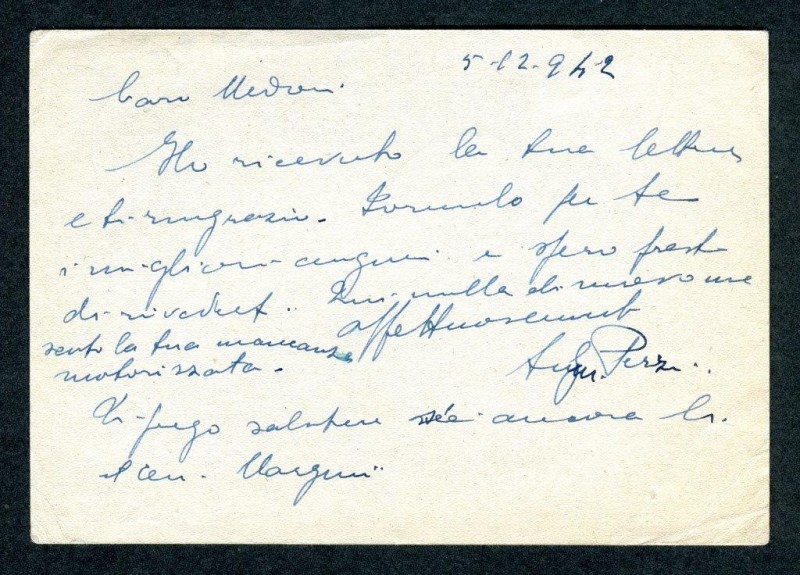 5-12-942
Caro Medroni
Ho ricevuto la tua lettera
e ti ringrazio. Formulo per te
i migliori auguri e spero presto
di rivederti. Qui nulla di nuovo ma
sento la tua mancanza affettuosamente
motorizzata.
Ti prego salutare se è ancora lì
il Ten.